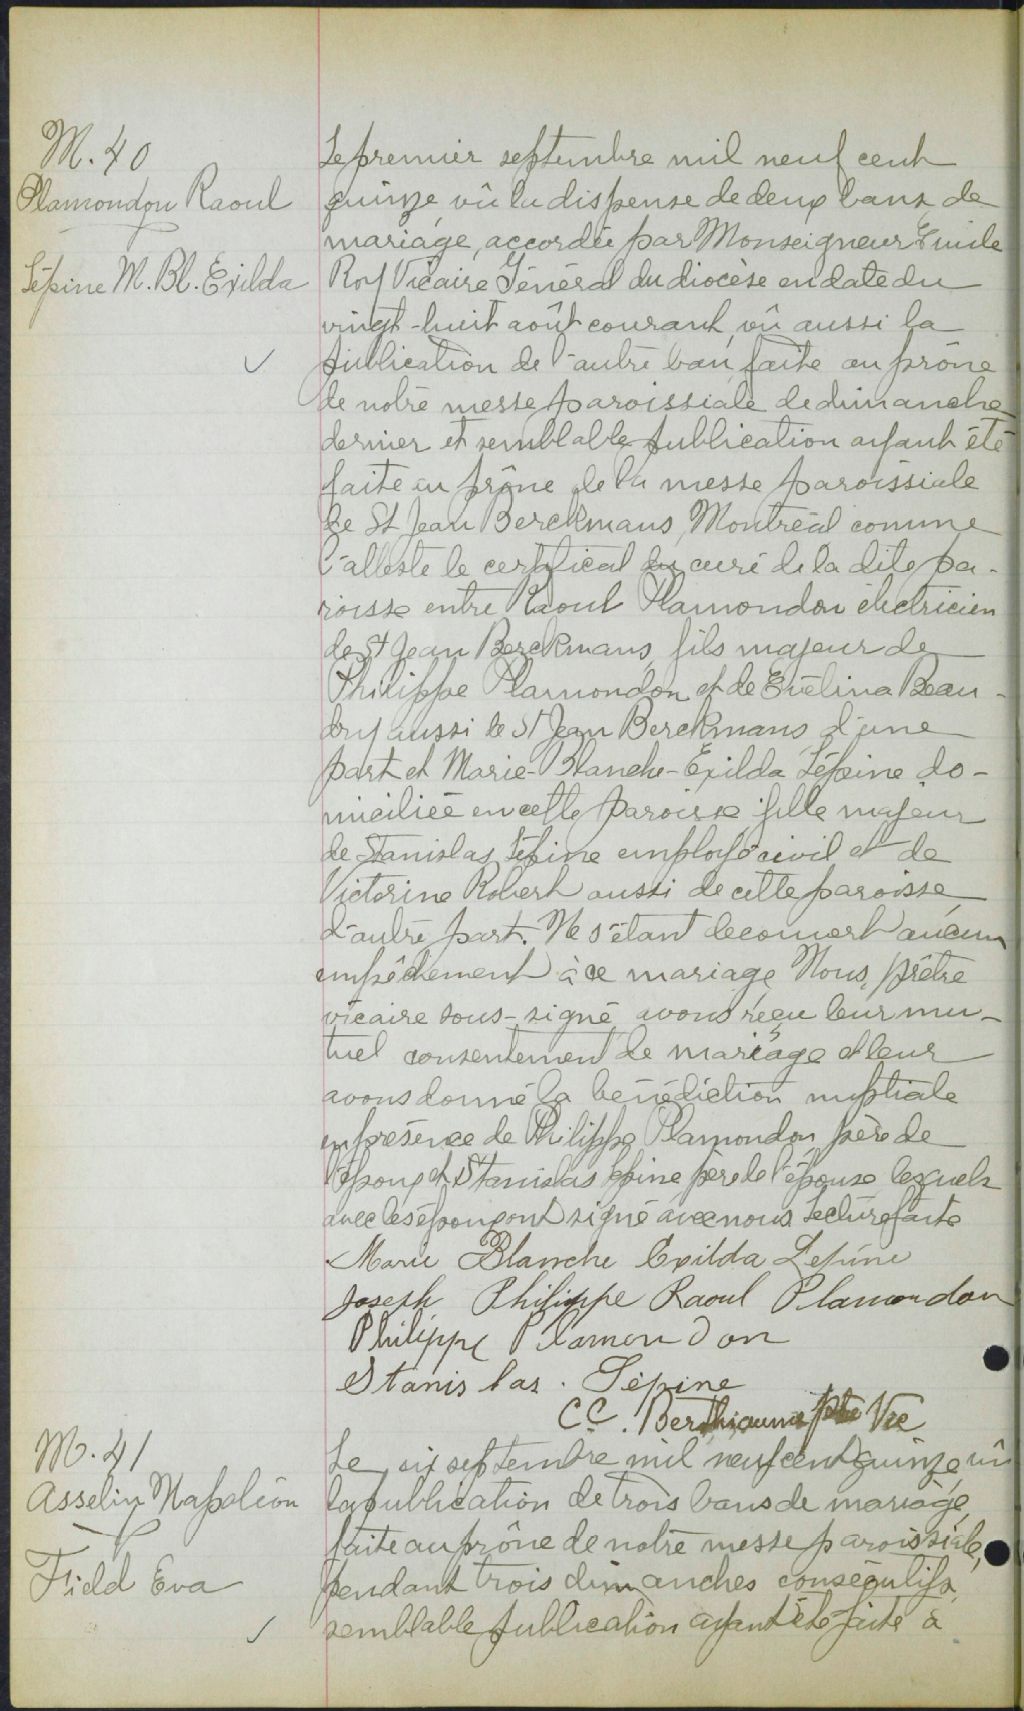 M. 40
Plamondon Raoul
Lépine M. Bl. Exilda
Le premier septembre mil neuf cent
quinze, vû la dispense de deux bans de
mariage, accordée par Monseigneur Emile
Roy Vicaire Général du diocèse en date du
vingt-huit août courant, vû aussi la
publication de l'autre ban, faite au prône
de notre messe paroissiale de dimanche
dernier et semblable publication ayant été
faite au prône de la messe paroissiale
de St Jean Berckmans, Montréal comme
l'atteste le certificat du curé de la dite pa-
roisse entre Raoul Plamondon électricien
de St Jean Berckmans, fils majeur de
Philippe Plamondon et de Evélina Beau-
dry aussi de St Jean Berckmans d'une
part et Marie-Blanche-Exilda Lépine do-
miciliée en cette paroisse fille majeur
de Stanislas Lépine employé civil et de
Victorine Robert aussi de cette paroisse
d'autre part. Ne s'étant découvert aucun
empêchement à ce mariage, Nous, prêtre
vicaire sous-signé avons reçu leur mu-
tuel consentement de mariage et leur
avons donné la bénédiction nuptiale
en présence de Philippe Plamondon père de
l'époux et Stanislas Lépine père de l'épouse lesquels
avec les époux ont signé avec nous. Lecture faite
Marie Blanche Exilda Lepine
Joseph Philippe Raoul Plamondon
Philippe Plamondon
Stanislas. Lépine
CC. Berthiaume ptre Vic
M. 41
Asselin Napoléon
Field Eva
Le six septembre mil neuf cent quinze vû
la publication de trois bans de mariage,
faite au prône de notre messe paroissiale,
pendant trois dimanches consécutifs,
semblable publication ayant été faite à